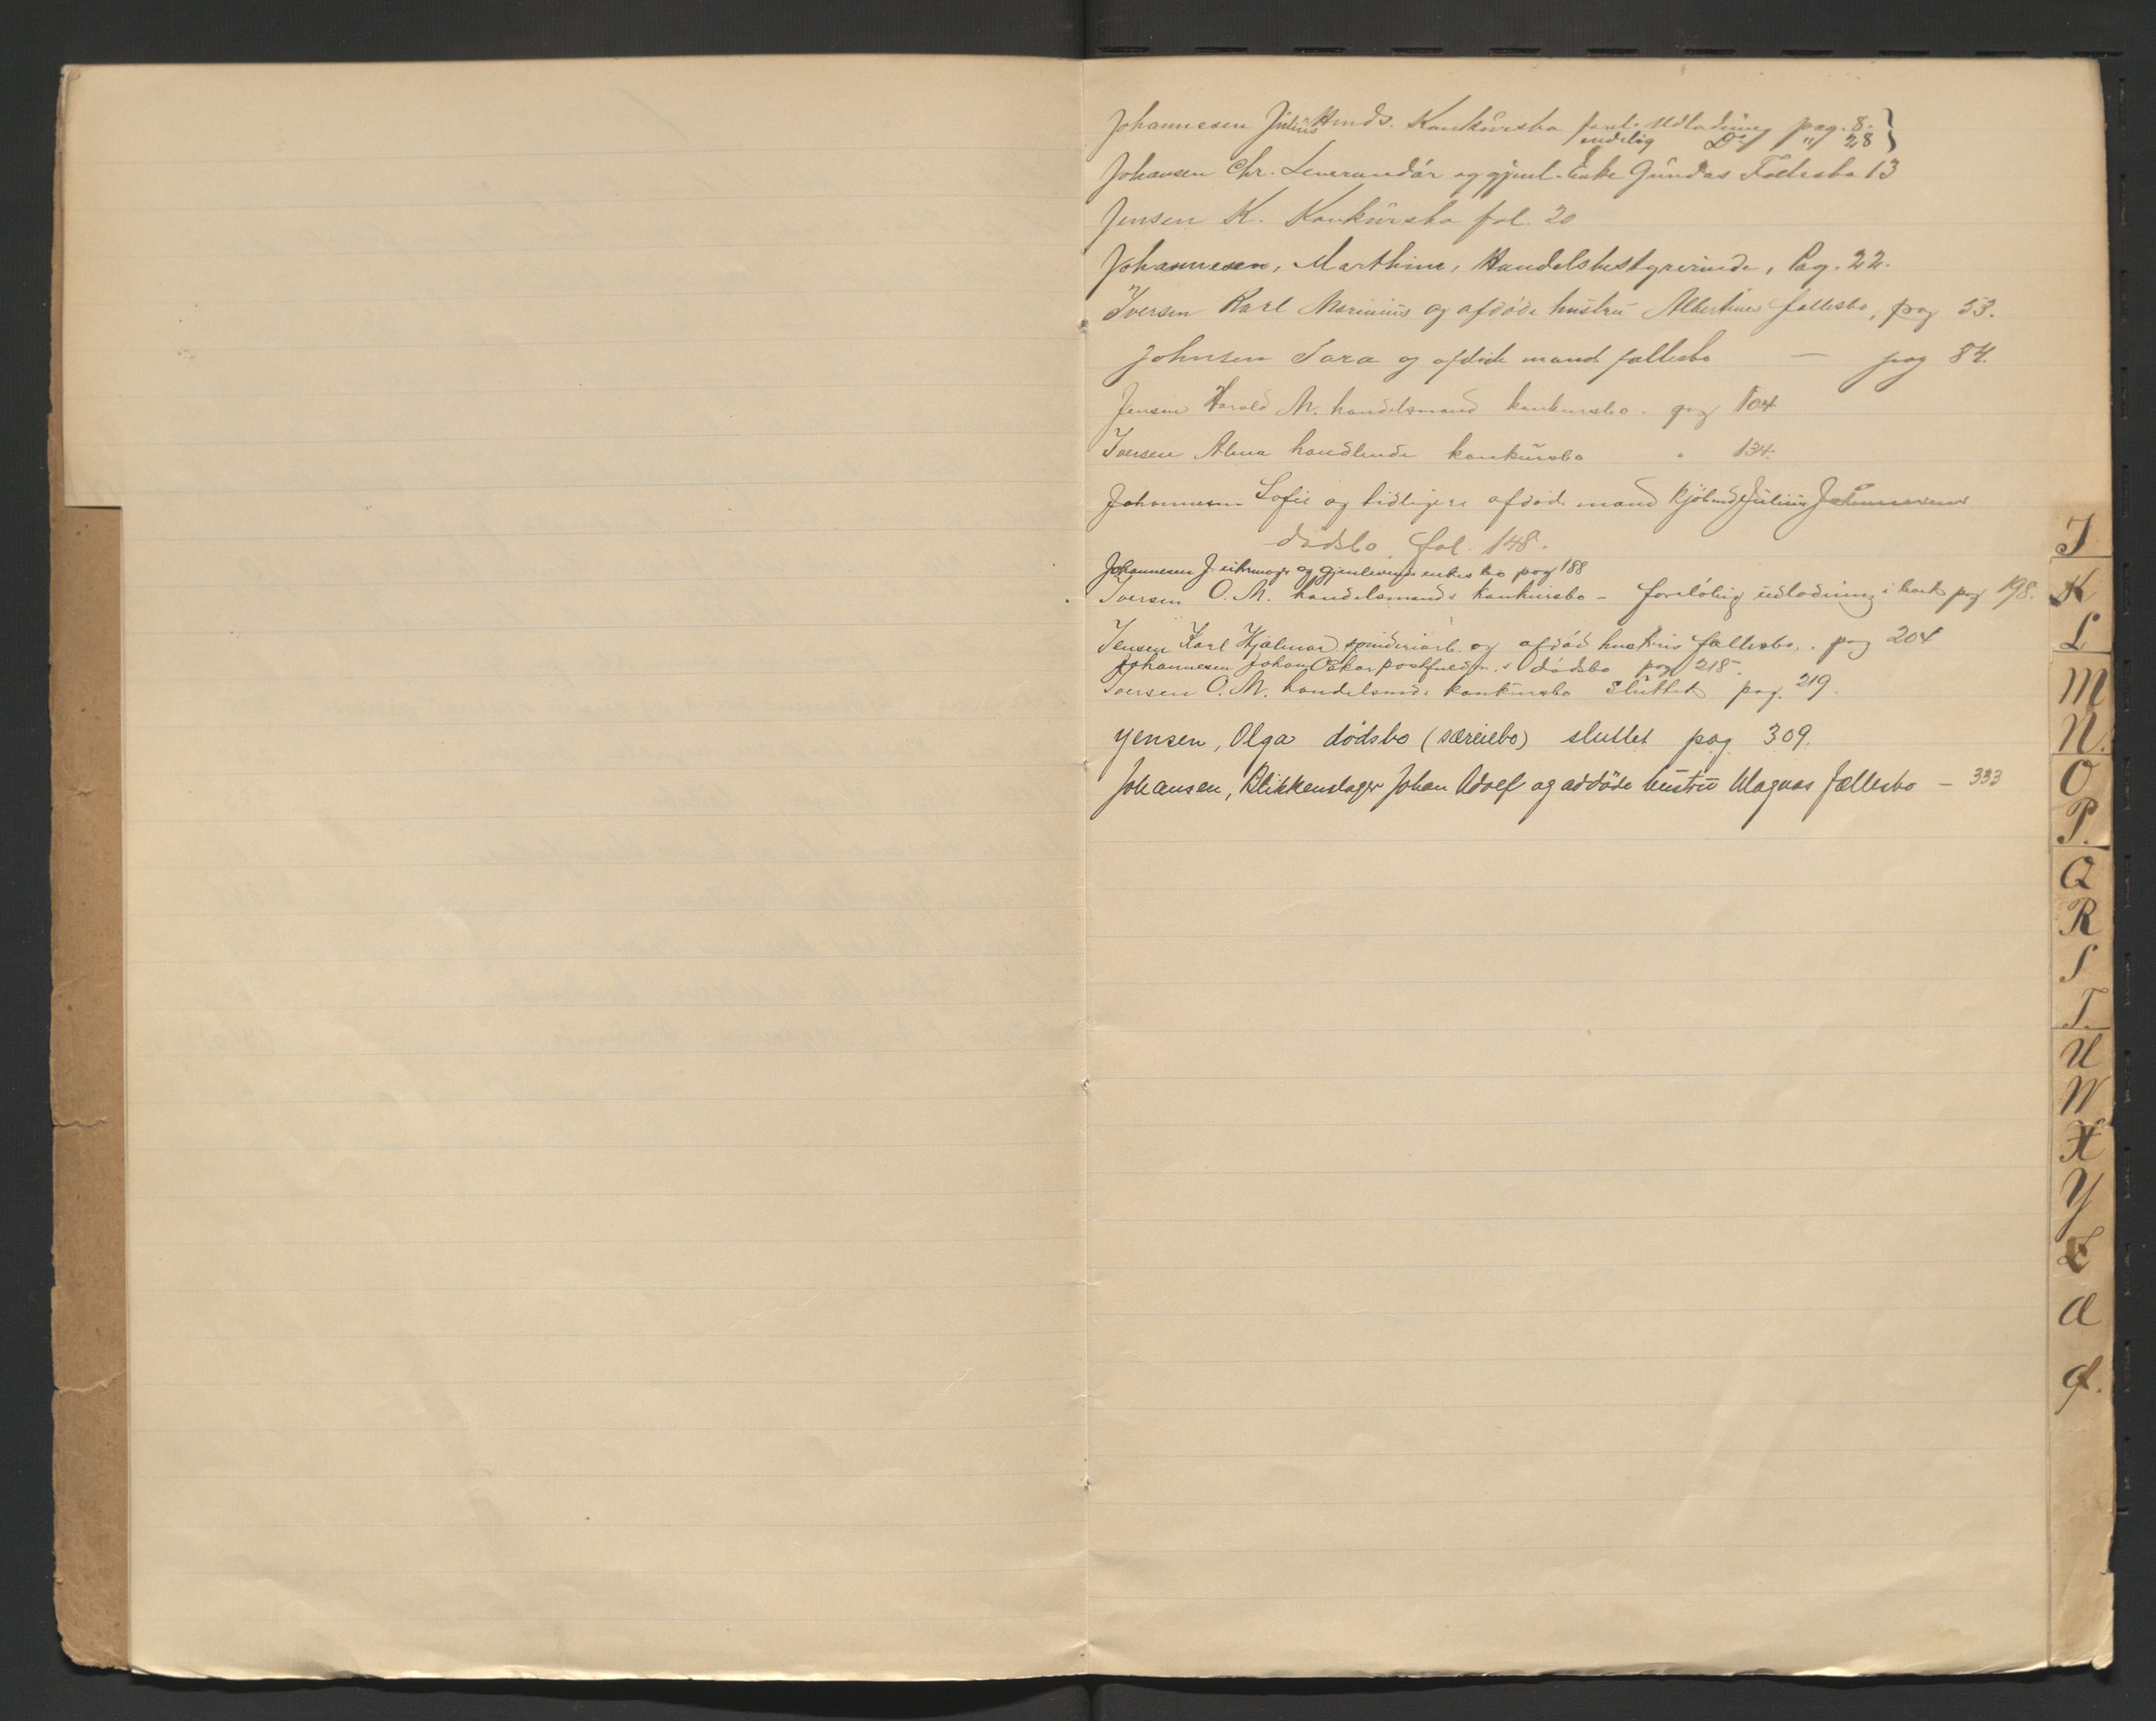 Johannesen Julius Hmds. Konkursbo forel. Udlodning pag. 8.
endelig Do " 28
Johansen Chr. Leverandör og gjenl. Enke Gundas Fællesbo 13
Jensen K. Konkursbo fol. 20
Johannesen, Marthine, Handelsbestyrerinde, Pag. 22.
Iversen Karl Marinius og afdöde hustru Albertines fællesbo, pag 53.
Johnsen Sara og afdöde mand fællesbo — pag 84.
Jensen Harald M. handelsmand konkursbo. pag 104
Iversen Alma handlende konkursbo " 134.
Johannesen Sofie og tidligere afdöde mand Kjöbmd Julius Johannesens
dödsbo. fol. 148.
Johannesen J. urtmager og gjenlevende enkes bo pag 188
Iversen O. M. handelsmands konkursbo – foreløbig udlodning i bort pag 198.
Jensen Karl Hjalmar spinderiarb. og afdöd hustrus fællesbo, . pag 204
Johannesen Johan Oskar postfuldm. s dödsbo pag 218.
Iversen O. M. handelsmds konkursbo sluttet pag. 219.
Jensen, Olga dödsbo (særeiebo) sluttet pag. 309.
Johansen, Blikkenslager Johan Adolf og avdöde hustru Magnas fællesbo – 333
I
K
L
M
N.
O
P.
Q
R
S
T.
U
W
X
Y
Z
Æ
Ø.